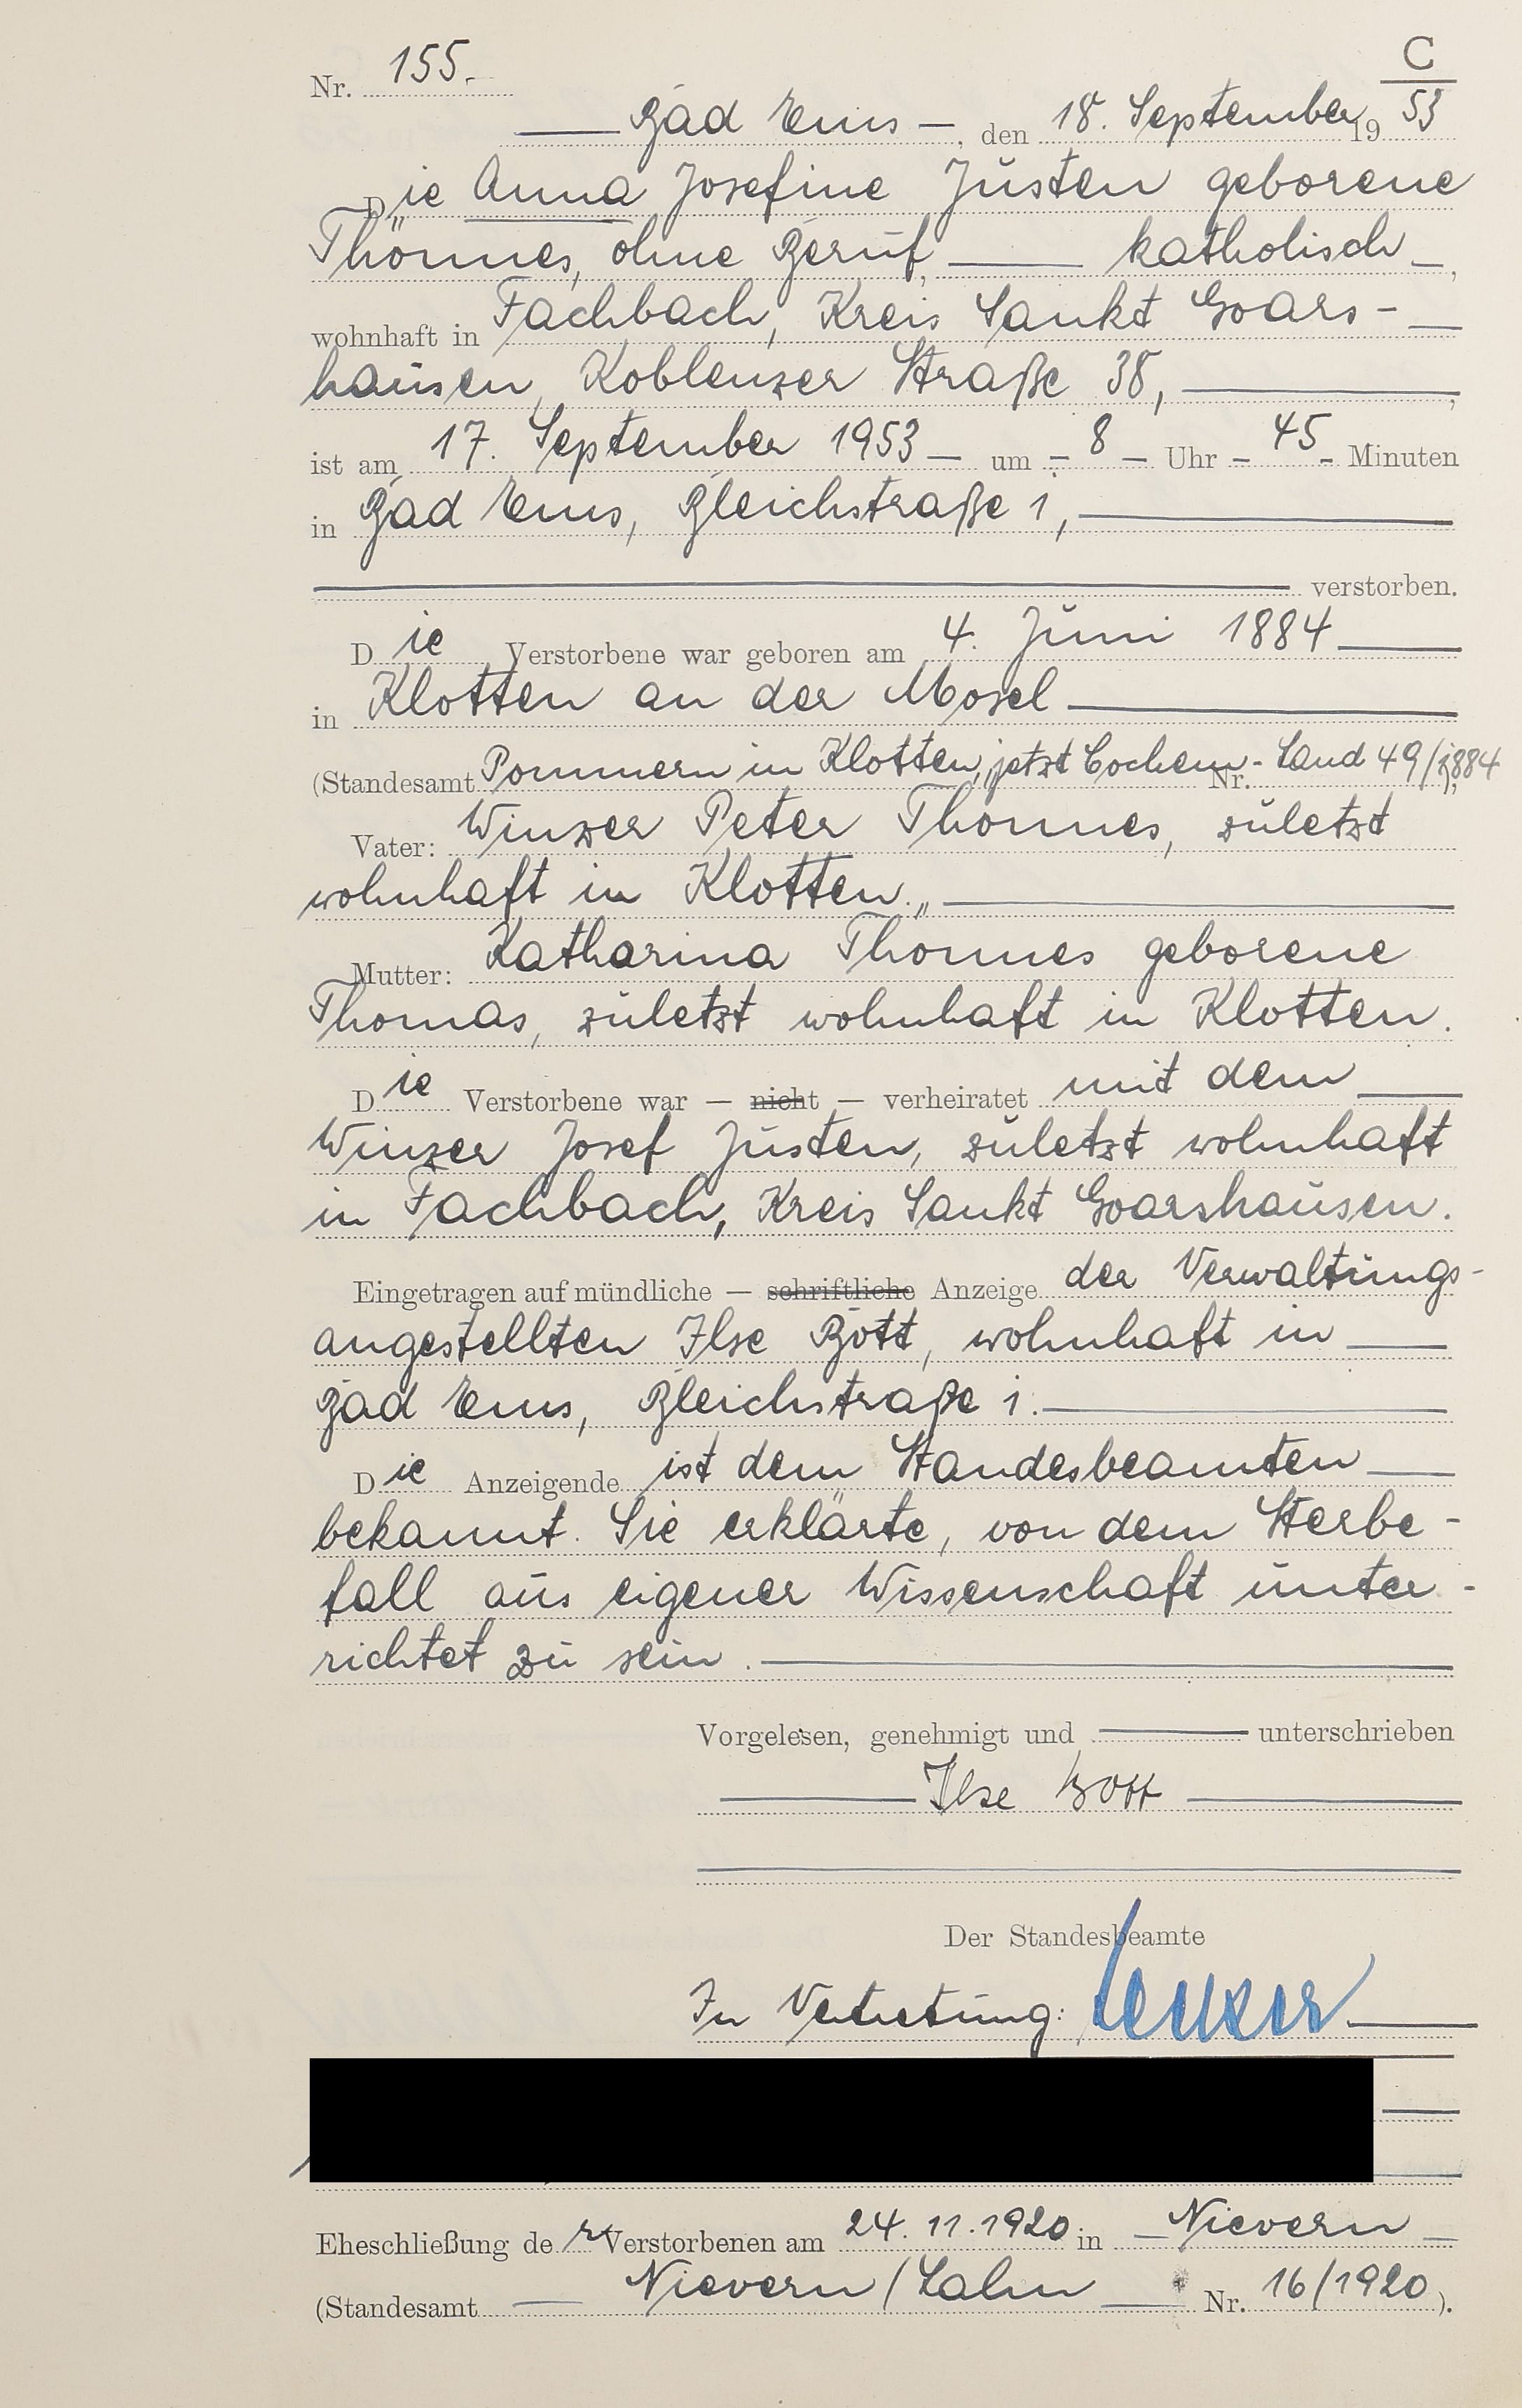 C
Nr. 155.
Bad Ems, den 18. September 1953
Die Anna Josefine Justen geborene
Thönnes, ohne Beruf, katholisch,
wohnhaft in Fachbach, Kreis Sankt Goars-
hausen, Koblenzer Straße 38,
ist am 17. September 1953 um 8 Uhr 45 Minuten
in Bad Ems, Bleichstraße 1,
verstorben.
Die Verstorbene war geboren am 4. Juni 1884
in Klotten an der Mosel
(Standesamt Pommern in Klotten, jetzt Cochem-Land Nr. 49/1884),
Vater: Winzer Peter Thönnes, zuletzt
wohnhaft in Klotten.
Mutter: Katharina Thönnes geborene
Thomas, zuletzt wohnhaft in Klotten.
Die Verstorbene war — nicht — verheiratet mit dem
Winzer Josef Justen, zuletzt wohnhaft
in Fachbach, Kreis Sankt Goarshausen.
Eingetragen auf mündliche — schriftliche Anzeige der Verwaltungs-
angestellten Ilse Bott, wohnhaft in
Bad Ems, Bleichstraße 1.
Die Anzeigende ist dem Standesbeamten
bekannt. Sie erklärte, von dem Sterbe-
fall aus eigener Wissenschaft unter-
richtet zu sein.
Vorgelesen, genehmigt und unterschrieben
Ilse Bott
Der Standesbeamte
In Vertretung:
Eheschließung der Verstorbenen am 24.11.1920 in Nievern
(Standesamt Nievern/Lahn Nr. 16/1920).